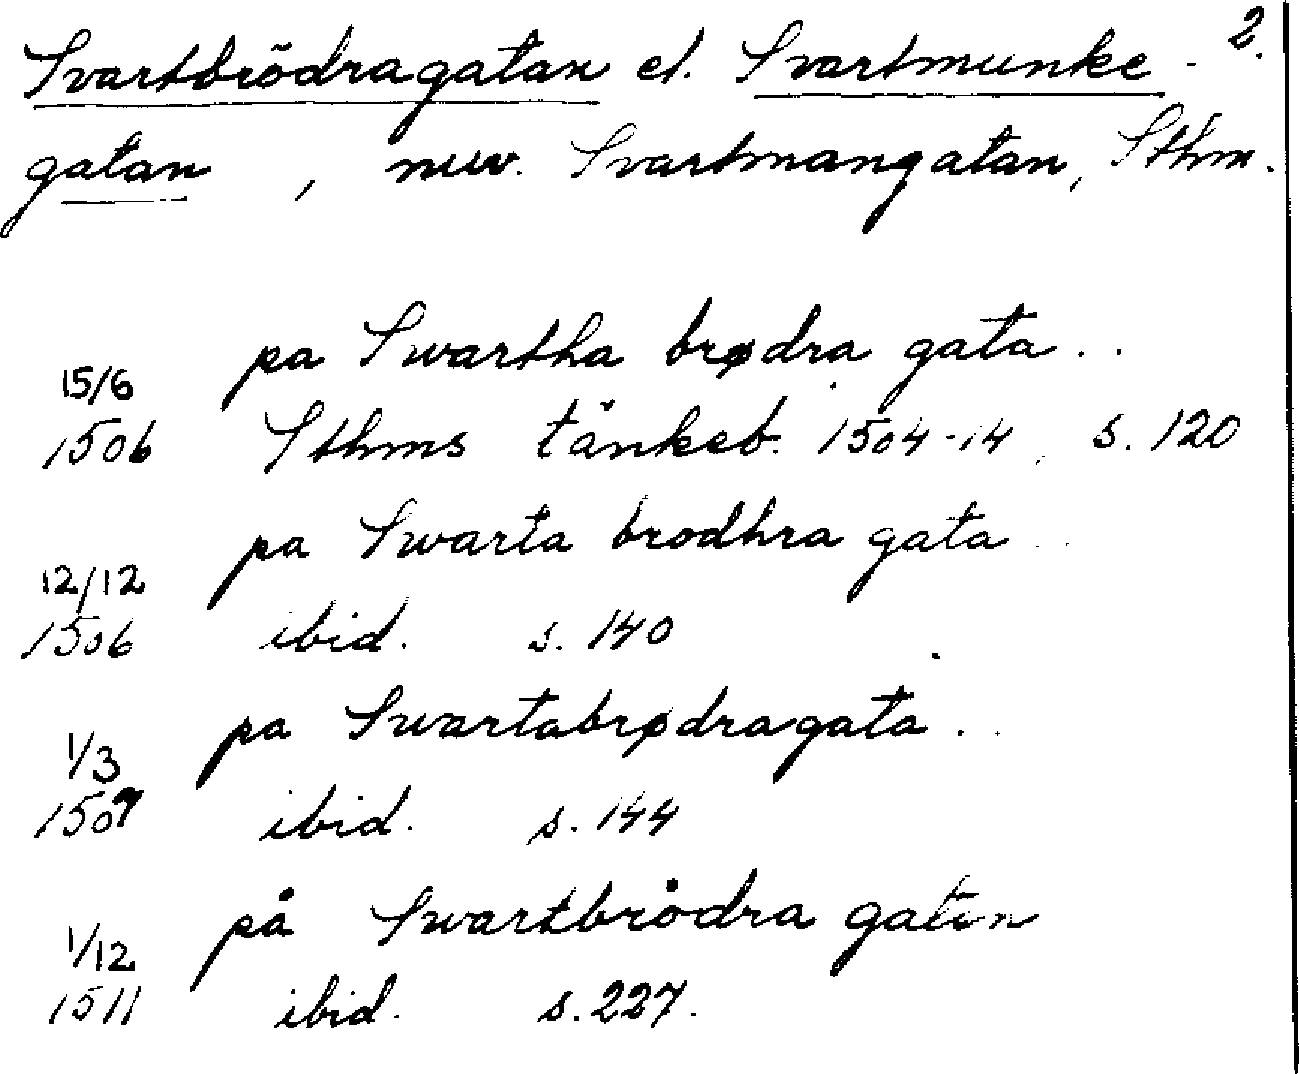 Svartbrödragatan el. Svartmunke- 2.
gatan, nuv. Svartmangatan, Sthm.
pa Swartha brødra gata..
15/6
1506 Sthms tänkeb. 1504-14, s. 120
pa Swarta brodhra gata..
12/12
1506 ibid. s. 140
pa Swartabrødragata..
1/3
1507 ibid. s. 144
på Swartbrödra gaten
1/12
1511 ibid. s. 227.